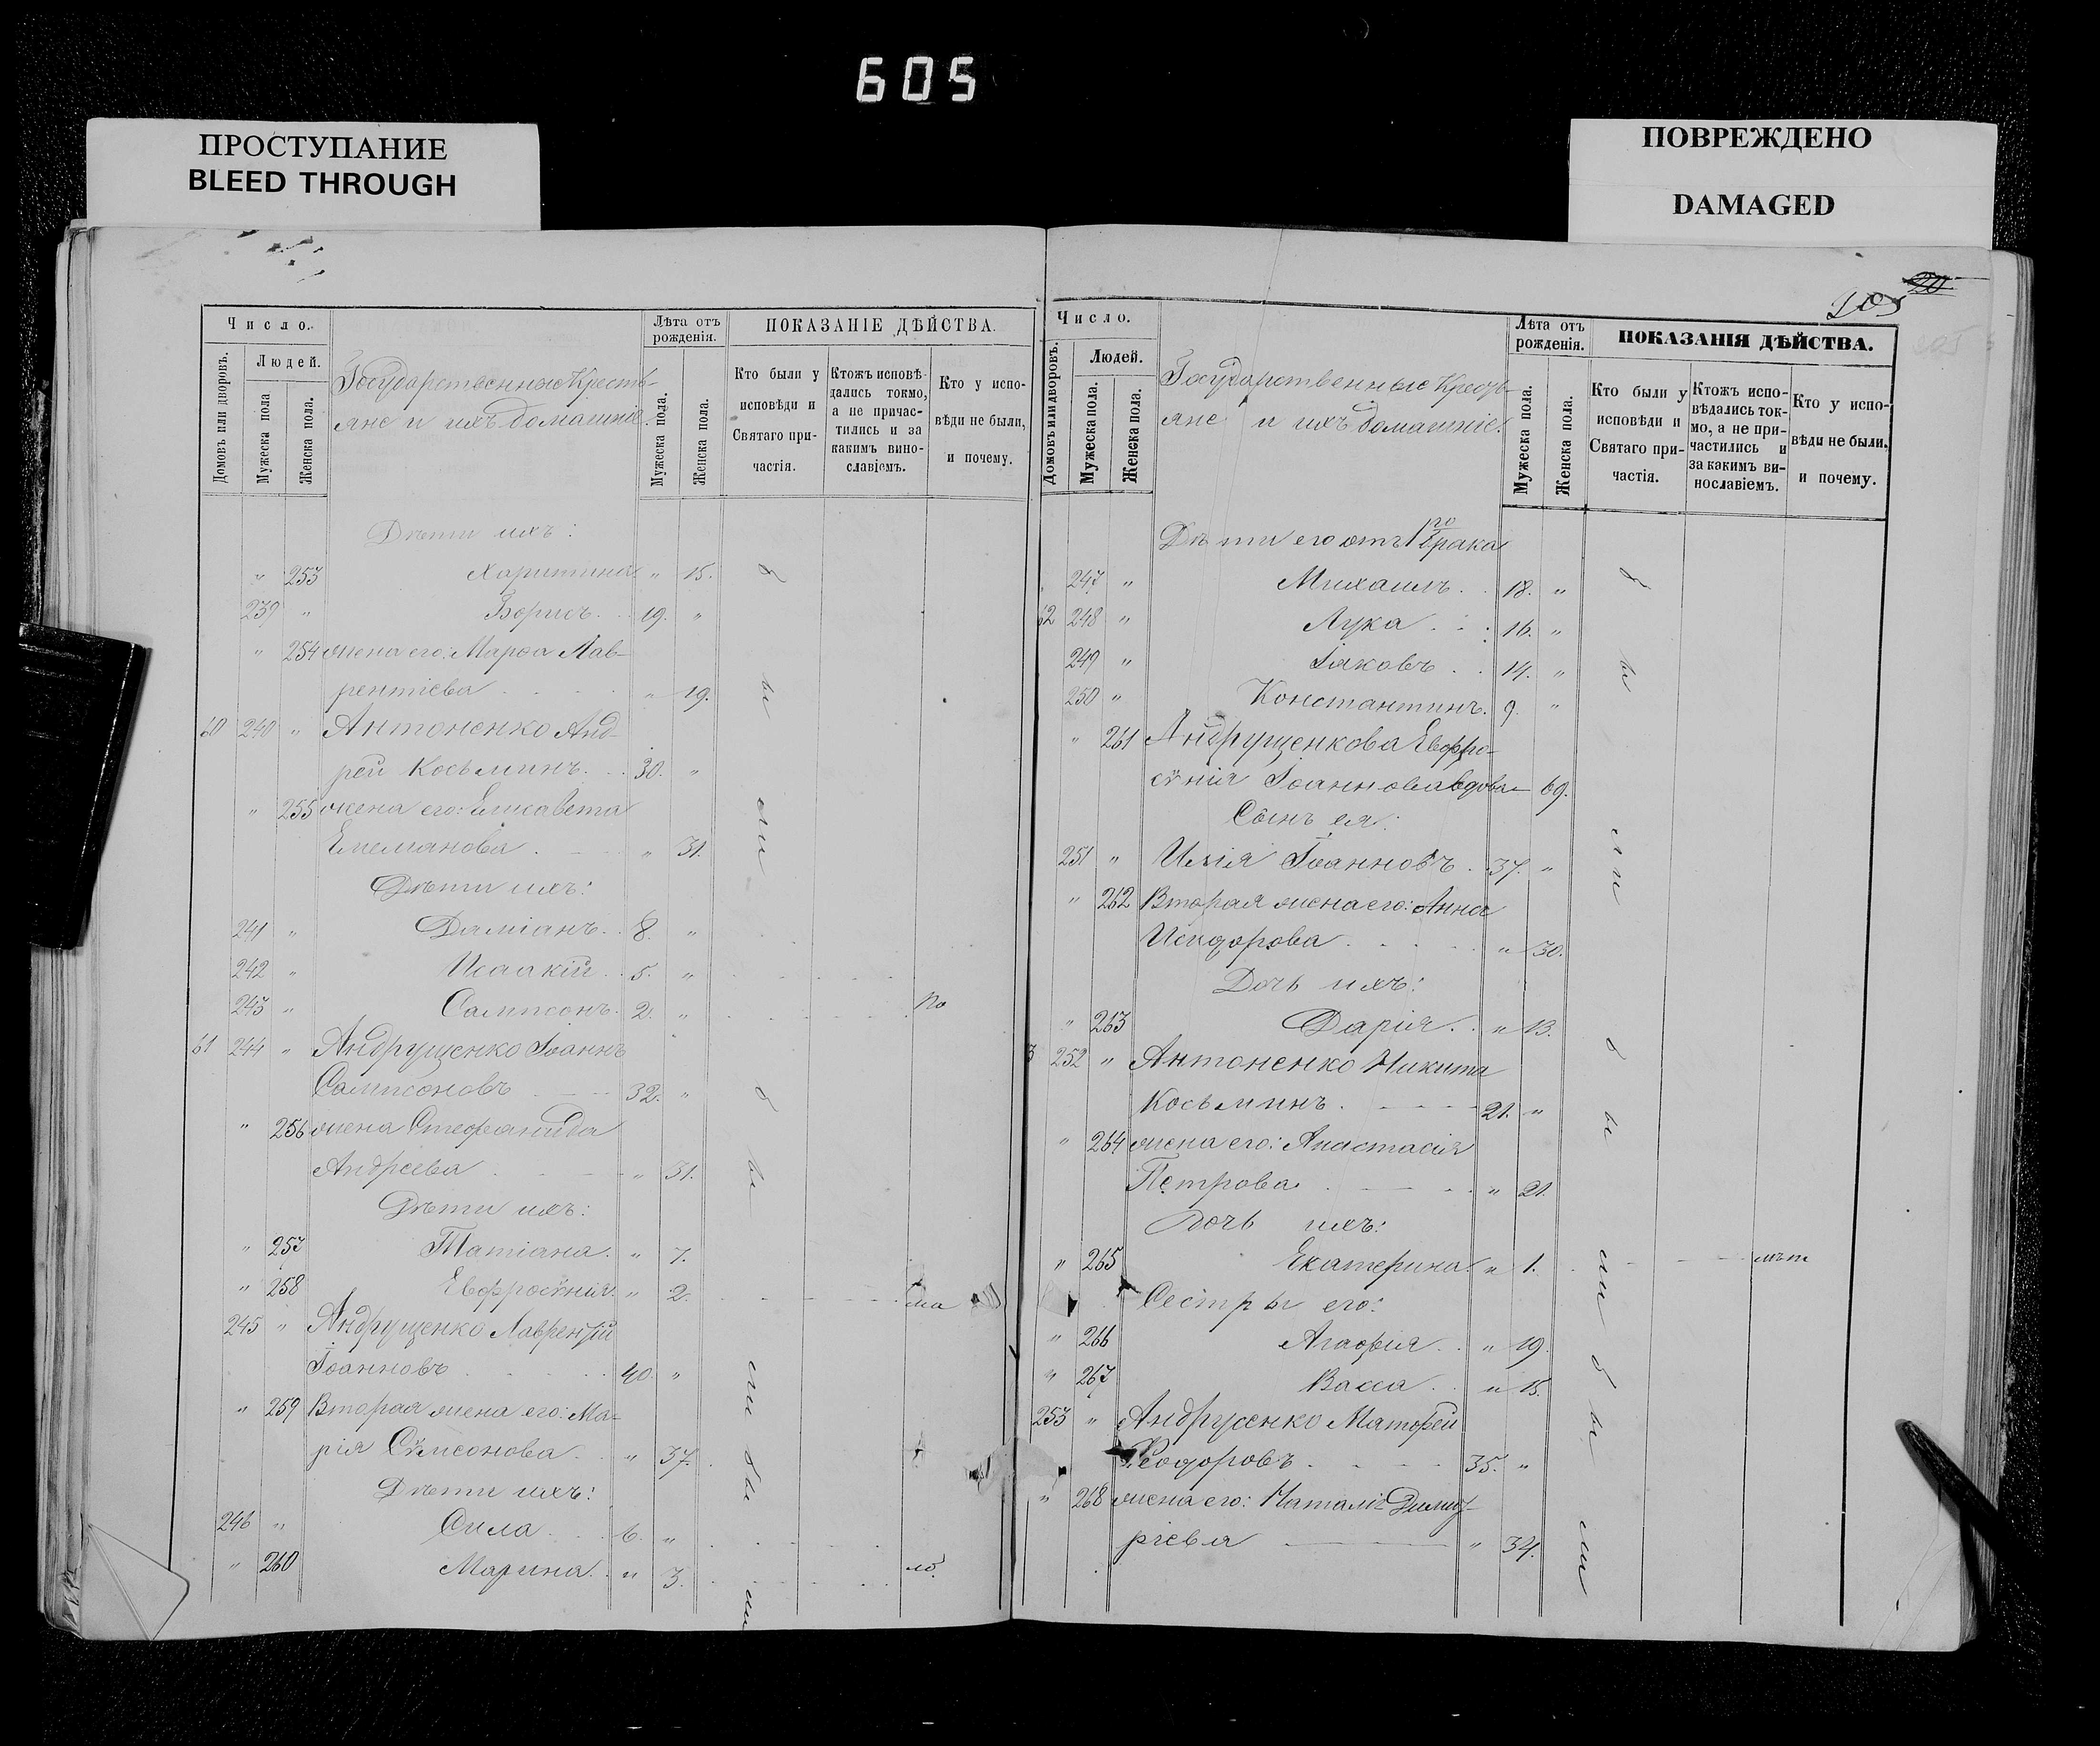 605
ПРОСТУПАНИЕ
BLEED THROUGH
ПОВРЕЖДЕНО
DAMAGED
Число.
Домовъ или дворовъ.
Людей.
Мужеска пола
Женска пола.
Государственные Кресть-
яне и ихъ домашніе.
Лѣта отъ рожденія.
Мужеска пола.
Женска пола.
ПОКАЗАНІЕ ДѢЙСТВА.
Кто были у исповѣди и Святаго при-частія.
Ктожъ исповѣ-дались токмо, а не причас-тились и за какимъ вино-славіемъ.
Кто у испо-вѣди не были, и почему.
Дѣти ихъ:
" 253 Харитина " 15.
239 " Борисъ 19. "
" 254 жена его: Марѳа Лав-
рентіева " 19.
60 240 " Антоненко Анд-
рей Косьминъ 30. "
" 255 жена его: Елисавета
Емеліанова " 31.
Дѣти ихъ:
241 " Даміанъ 8. "
242 " Исаакій 5. "
243 " Сампсонъ 2. " По
61 244 " Андрущенко Іоаннъ
Сампсоновъ 32. "
" 256 жена Стефанида
Андреева " 31.
Дѣти ихъ:
" 257 Татіана " 7.
" 258 Евфросѵнія " 2. ма
245 " Андрущенко Лаврентій
Іоанновъ 40. "
" 259 Вторая жена его: Ма-
рія Сѵмсонова " 37.
Дѣти ихъ:
246 " Сила 6. "
" 260 Марина " 3. ло
б ы ли б ы ли бы ли
20
205
Число.
Домовъ или дворовъ.
Людей.
Мужеска пола.
Женска пола.
Государственные Кресть-
яне и ихъ домашніе.
Лѣта отъ рожденія.
Мужеска пола.
Женска пола.
ПОКАЗАНІЯ ДѢЙСТВА.
Кто были у исповѣди и Святаго при-частія.
Ктожъ испо-вѣдались ток-мо, а не при-частились и за какимъ ви-нославіемъ.
Кто у испо-вѣди не были. и почему.
Дѣти его отъ 1го брака
247 " Михаилъ 18. "
62 248 " Лука 16. "
249 " Іаковъ 14. "
250 " Константинъ 9. "
" 261 Андрущенкова Евфро-
сѵнія Іоаннова вдова 69.
Сынъ ея:
251 " Илія Іоанновъ 37. "
" 262 Вторая жена его: Анна
Исидорова " 30.
Дочь ихъ:
" 263 Дарія " 13.
3 252 " Антоненко Никита
Косьминъ 21. "
" 264 жена его: Анастасія
Петрова " 21.
Дочь ихъ:
" 265 Екатерина " 1. лѣт
Сестры его:
" 266 Агафія " 19.
" 267 Васса " 15.
253 " Андрусенко Матфей
Ѳеодоровъ 35. "
" 268 жена его: Наталія Димит-
ріева " 34.
б ы ли б ы ли б ы ли